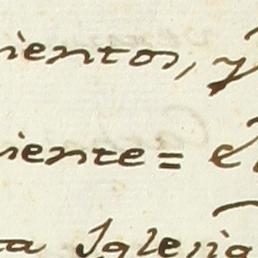 ientos, y
iente= el
ta Iglesia